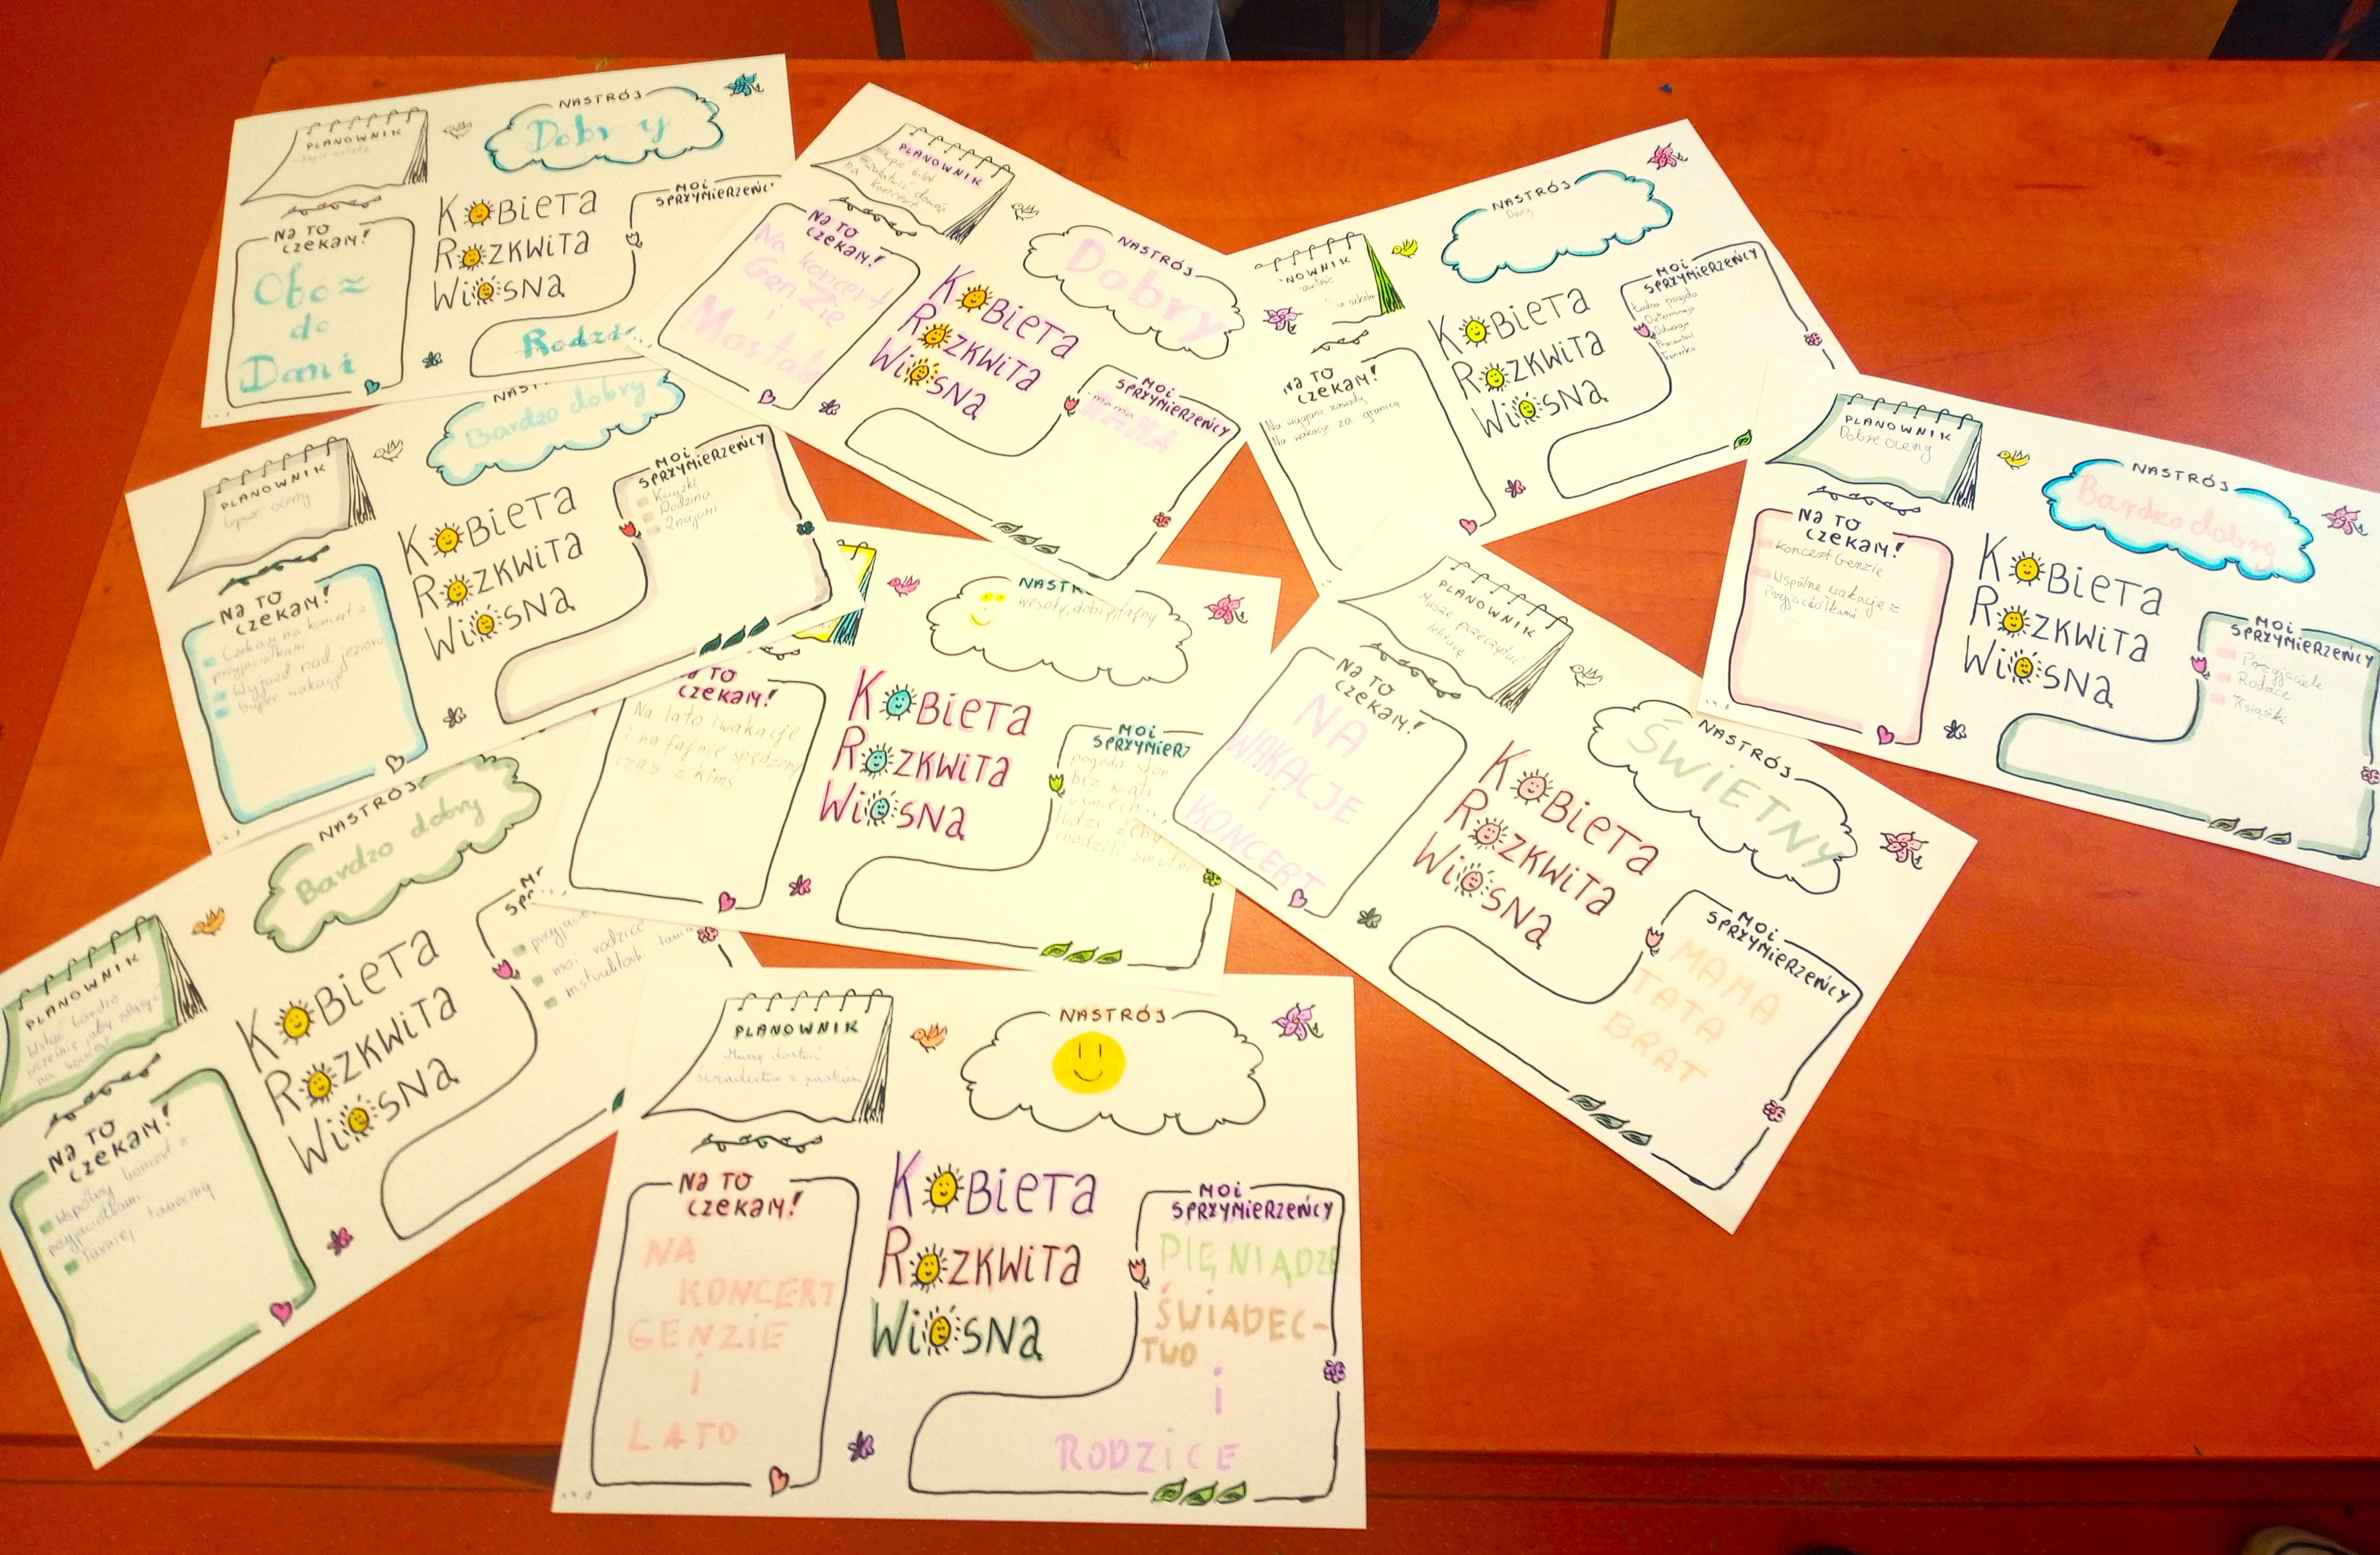 PLANOWNIK
NASTRÓJ
Dobry
KOBIETA
ROZKWITA
WIOSNĄ
NA TO
CZEKAM!
Obóz
do
Danii
MOI
SPRZYMIERZEŃCY
PLANOWNIK
- Kupić bilet
na koncert
NASTRÓJ
Dobry
NA TO
CZEKAM!
Na koncert
GenZie
i
KOBIETA
ROZKWITA
WIOSNĄ
MOI
SPRZYMIERZEŃCY
- mama
MAMA
NOWNIK
NASTRÓJ
KOBIETA
ROZKWITA
WIOSNĄ
NA TO
CZEKAM!
Na wygrane zawody
Na wakacje za granicą
MOI
SPRZYMIERZEŃCY
Ładna pogoda
Determinacja
Odwaga
Trenerka
PLANOWNIK
Dobre oceny
NASTRÓJ
Bardzo dobry
NA TO
CZEKAM!
Koncert Genzie
Wspólne wakacje z
przyjaciółkami
KOBIETA
ROZKWITA
WIOSNĄ
MOI
SPRZYMIERZEŃCY
Przyjaciele
Rodzice
Książki
PLANOWNIK
lepsze oceny
NAST
Bardzo dobry
KOBIETA
ROZKWITA
WIOSNĄ
NA TO
CZEKAM!
Czekam na koncert z
przyjaciółkami
Wyjazd nad jezioro
Super wakacje
MOI
SPRZYMIERZEŃCY
Książki
Rodzina
Znajomi
NASTR
wesoły, dobry, fajny
TO
CZEKAM!
Na lato i wakacje
i na fajnie spędzony
czas z kimś
KOBIETA
ROZKWITA
WIOSNĄ
MOI
SPRZYMIERZ
pogoda słon
bez wiatr
uśmiech
ludzi żeby
chodzili smutn
PLANOWNIK
Muszę przeczytać
lekturę
NASTRÓJ
ŚWIETNY
NA TO
CZEKAM!
NA
WAKACJE
i
KONCERT
KOBIETA
ROZKWITA
WIOSNĄ
MOI
SPRZYMIERZEŃCY
MAMA
TATA
BRAT
PLANOWNIK
Wstać bardzo
wcześnie żeby zdążyć
na koncert
NASTRÓJ
Bardzo dobry
KOBIETA
ROZKWITA
WIOSNĄ
NA TO
CZEKAM!
wspólny koncert z
przyjaciółkami
turniej taneczny
przyjacie
moi rodzice
PLANOWNIK
Muszę dostać
świadectwo z paskiem
NASTRÓJ
NA TO
CZEKAM!
NA
KONCERT
GENZIE
i
LATO
KOBIETA
ROZKWITA
WIOSNĄ
MOI
SPRZYMIERZEŃCY
PIĘNIĄDZE
ŚWIADEC-
TWO
i
RODZICE